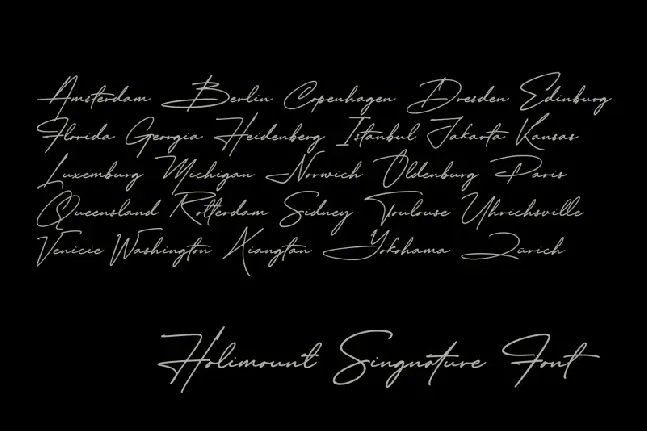 Amsterdam Berlin Copenhagen Dresden Edinburg
Florida Georgia Heidenberg Istanbul Jakarta Kansas
Luxemburg Michigan Norwich Oldenburg Paris
Queensland Rotterdam Sidney Toulouse Uhrichsville
Venicie Washington Xiangtan Yokohama Zurich
Holimount Singnature Font